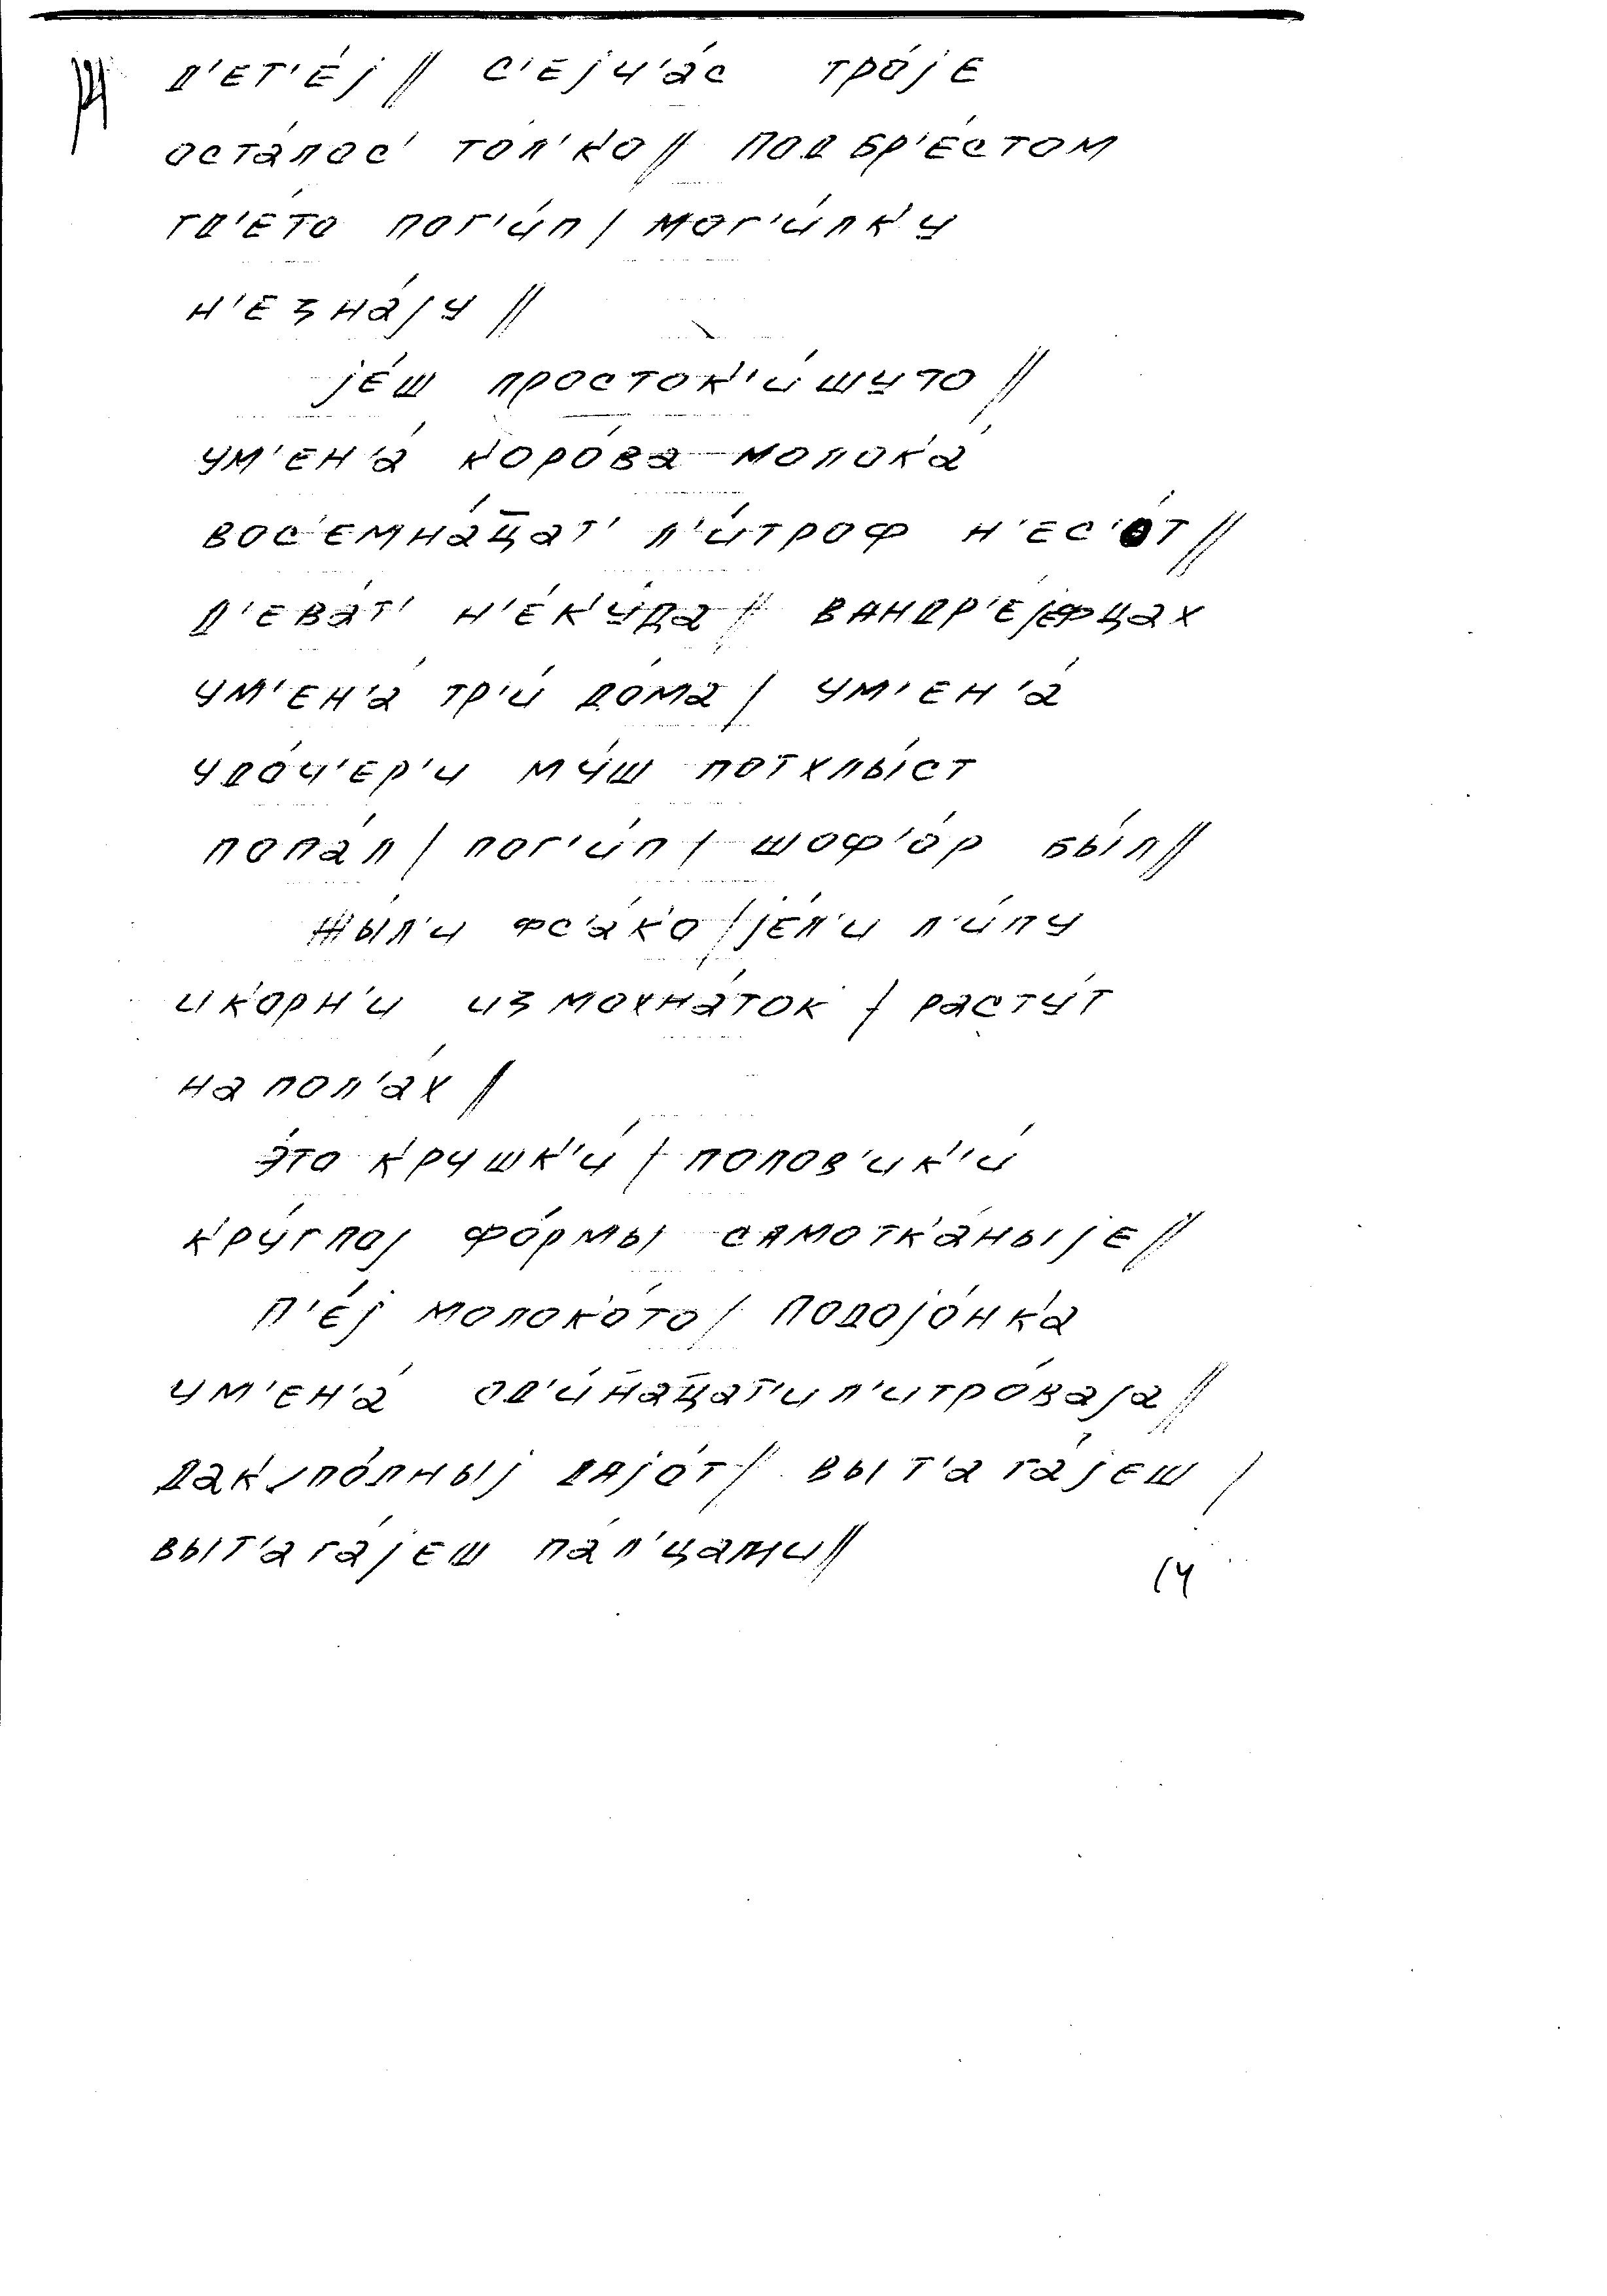 14 д'ет'е́j // с'еjч'а́с тро́jе
оста́лос' то́л'ко // под бр'е́стом
гд'е́то пог'и́п / мог'и́лку
н'езна́jу //
jе́ш просток'и́шуто //
ум'ен'а́ коро́ва молока́
вос'емна́ц̄ат' л'и́троф н'ес'о́т //
д'ева́т' н'е́куда // вандр'е́jефцах
ум'ен'а́ тр'и́ до́ма / ум'ен'а́
удо́ч'ер'и му́ш потхлы́ст
попа́л / пог'и́п / шоф'о́р бы́л //
жы́л'и фс'а́ко / jе́л'и л'и́пу
ико́рн'и из мохна́ток / расту́т
на пол'а́х //
э́то крушк'и́ / полов'ик'и́
кру́глоj фо́рмы самотка́ныjе //
п'е́j молоко́то / подоjо́нка
ум'ен'а́ од'и́н̄ац̄ат'ил'итро́ваjа //
дак по́лныj даjо́т / выт'ага́jеш /
выт'ага́jеш па́л'цами //
14